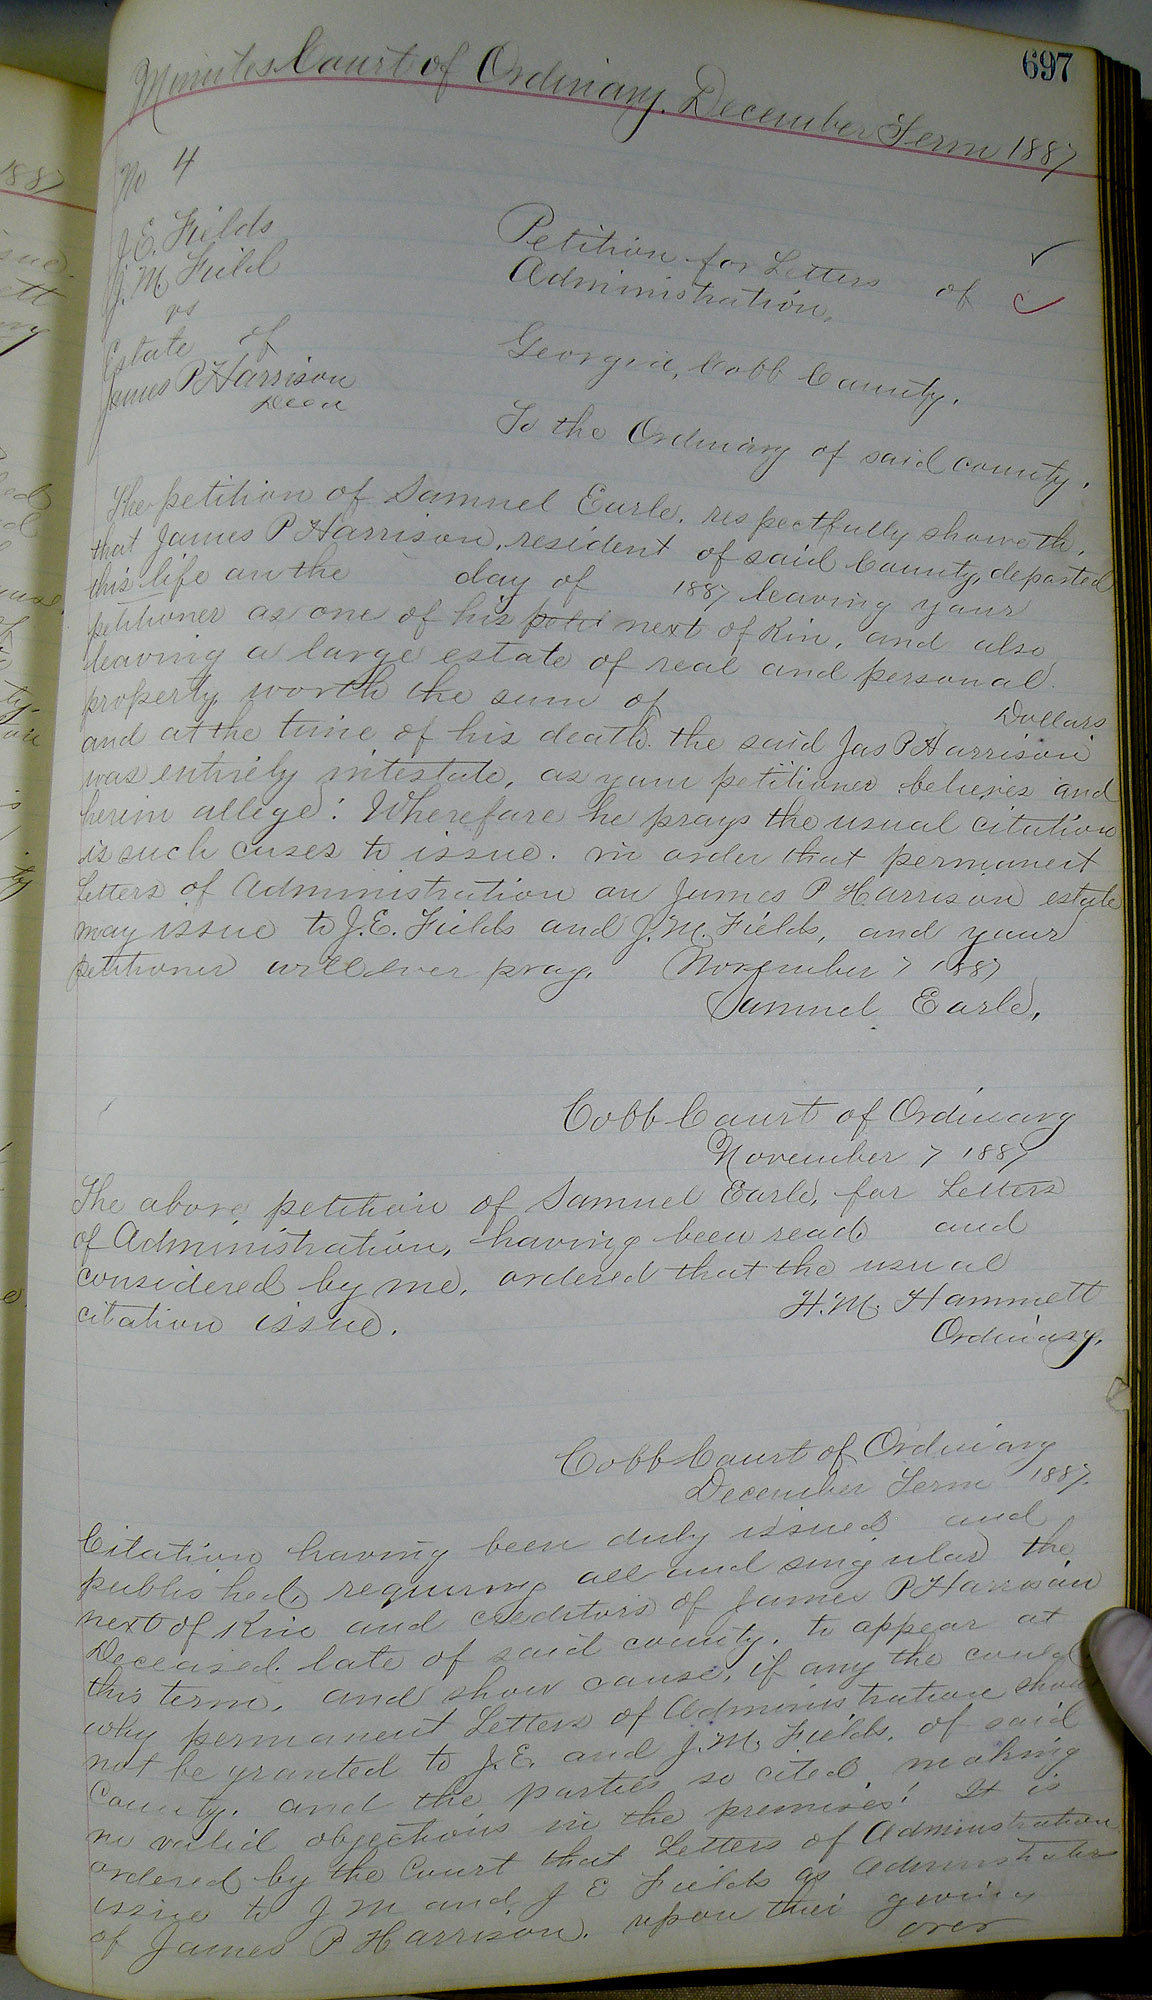 697
Minutes Court of Ordinary, December Term 1887
No 4
J. E. Fields
J. M. Field
vs
Estate of
James P Harrison
Decd
Petition for Letters of
Administration,
Georgia, Cobb County.
To the Ordinary of said county.
The petition of Samuel Earle, respectfully showeth,
that James P Harrison, resident of said County, departed
this life on the day of 1887 leaving your
petitioner as one of his next of Kin, and also
leaving a large estate of real and personal
property worth the sum of Dollars
and at the time of his death the said Jas P Harrison
was entirely intestate, as your petitioner believes and
herein allege: Wherefore he prays the usual citation
is such cases to issue. in order that permanent
Letters of Administration on James P Harrison estate
may issue to J. E. Fields and J. M. Fields, and your
petitioner will ever pray. November 7 1887
Samuel Earle,
Cobb Court of Ordinary
November 7 1887
The above petition of Samuel Earle, for Letters
of Administration, having been read and
considered by me, ordered that the usual
citation issue.
H. M. Hammett
Ordinary.
Cobb Court of Ordinary
December Term 1887.
Citation having been duly issued and
published, requiring all and singular the
next of Kin and creditors of James P Harrison
Deceased. late of said county, to appear at
this term, and show cause, if any the could
why permanent Letters of Administration shou
not be granted to J. E. and J. M. Fields, of said
County. and the parties so cited making
no valid objections in the premises! It is
ordered by the Court that Letters of Administration
issue to J M and J E Fields as Administrators
of James P Harrison. upon their giving
over
1887